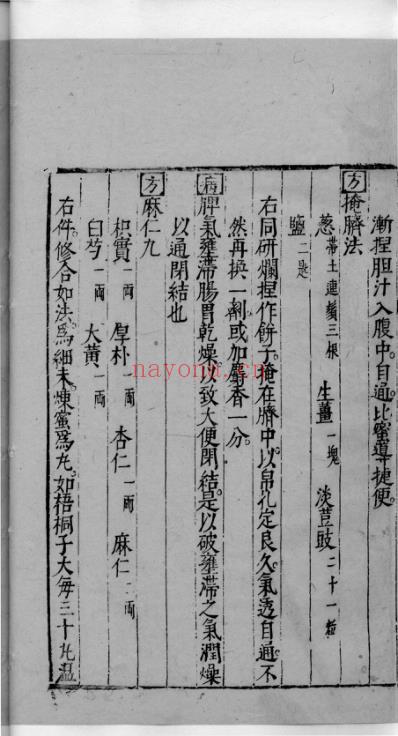 漸捏胆汁入腹中自通比蜜導捷便
方掩臍法
葱帶土連鬚三根 生薑一塊 淡荳豉二十一粒
鹽二匙
右同研爛捏作餅子掩在臍中以帛扎定良久氣透自通不
然再換一劑或加麝香一分
病脾氣壅滯腸胃乾燥以致大便閉結是以破壅滯之氣潤燥
以通閉結也
方麻仁丸
枳實一兩 厚朴一兩 杏仁一兩 麻仁二兩
白芍一兩 大黃一兩
右件修合如法爲細末煉蜜爲丸如梧桐子大每三十丸温
nayona.cn